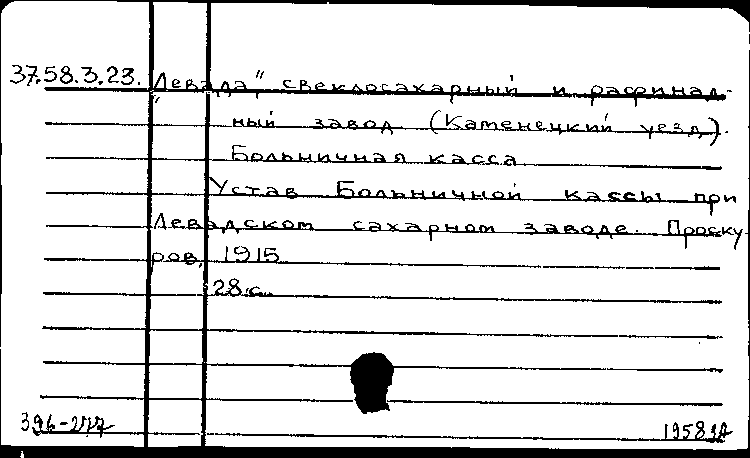 37.58.3.23. „Левада", свеклосахарный и рафинад-
ный завод (Каменецкий уезд).
Больничная касса
Устав Больничной кассы при
Левадском сахарном заводе. Проску
ров, 1915.
28 с.
396-277